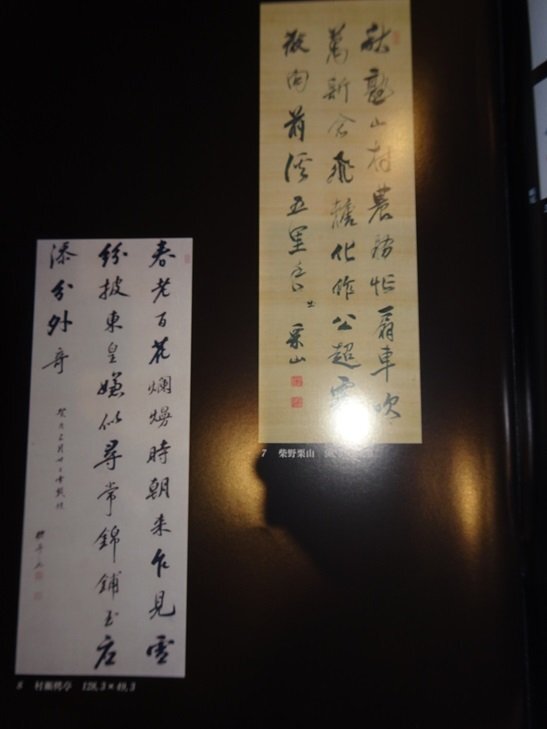 秋熟山村農務忙一扇車吹
新倉飛糠化作公超霧
散向前溪五里香
栗山
7 柴野栗山
春老百花爛熳時朝来乍見雪
紛披東皇嫌似尋常錦鋪玉
添分外奇
8 村瀬栲亭 128.3×49.3